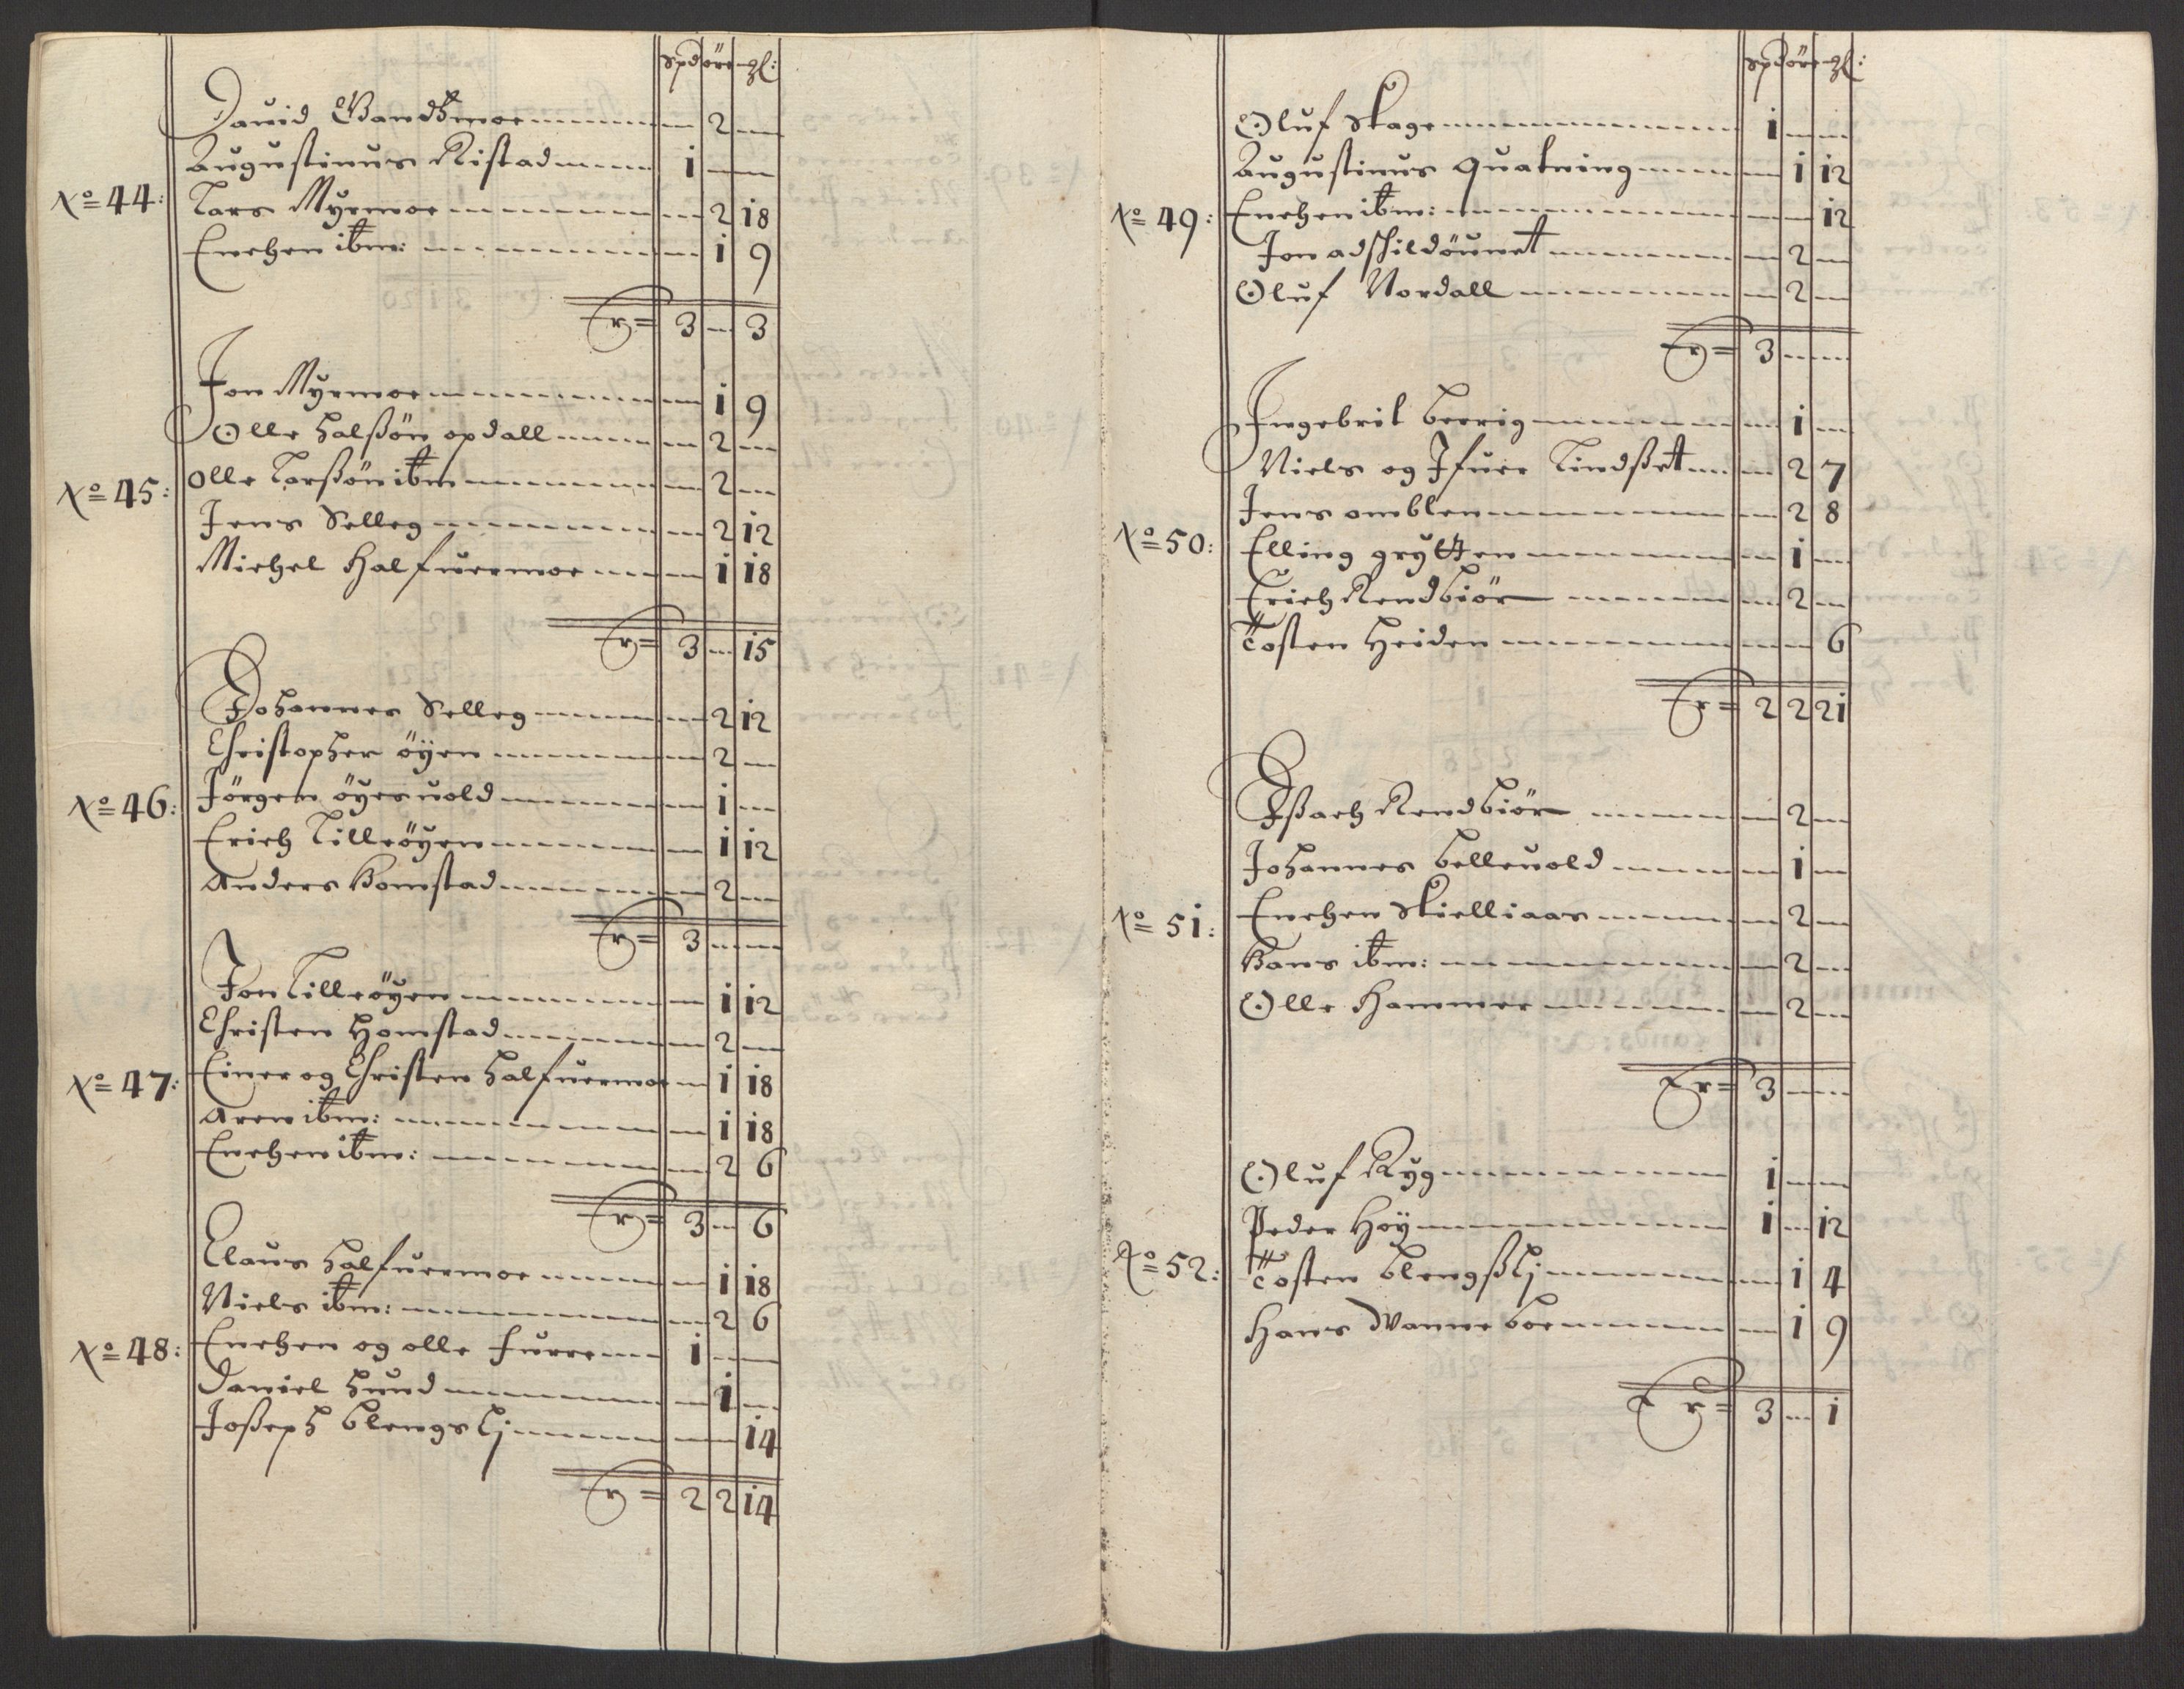 spd öre ℳ:
Dauid Bandhmoe 2
Augustinus Kistad 1
No 44: Lars Myrmoe 2 18
Enchen ibm: 1 9
3 3
Jon Myrmoe 1 9
Olle halßön opdall 2
No 45: Olle Larßön ibm 2
Jens Selleg 2 12
Michel Halfuermoe 1 18
3 15
Johannes Selleg 2 12
Christopher öyen 2
No 46: Jörgen öyesuold 1
Erich Lilleöyen 1 12
Anders Homstad 2
3
Jon Lilleöyen 1 12
Christen Homstad 2
No 47: Einer og Christen halfuermoe 1 18
Aren ibm: 1 18
Enchen ibm: 2 6
3 6
Claus halfuermoe 1 18
Niels ibm: 2 6
No 48: Enchen og olle furre 1
Daniel hund 1
Joßeph blengslj 14
2 2 14
spd öre
Oluf Skage 1
Augustinus Quatning 1 12
No 49: Enchen ibm: 12
Jon adschildöunet 2
Oluf Nordall 2
3
Ingebril berrig 1
Niels og Ifuer Lindßet 2 7
Jens omblen 2 8
No 50: Elling grytten 1
Erich Rendbiör 2
Tosten Heiden 6
2 2 21
Ißach Rendbiör 2
Johannes belleuold 1
No 51: Enchen Skielliaas 2
Hans ibm: 2
Olle Hammer 2
3
Oluf Ryg 1
Peder Höy 1 12
No 52: Tosten blengßlj 1 4
Hans Wanneboe 1 9
3 1